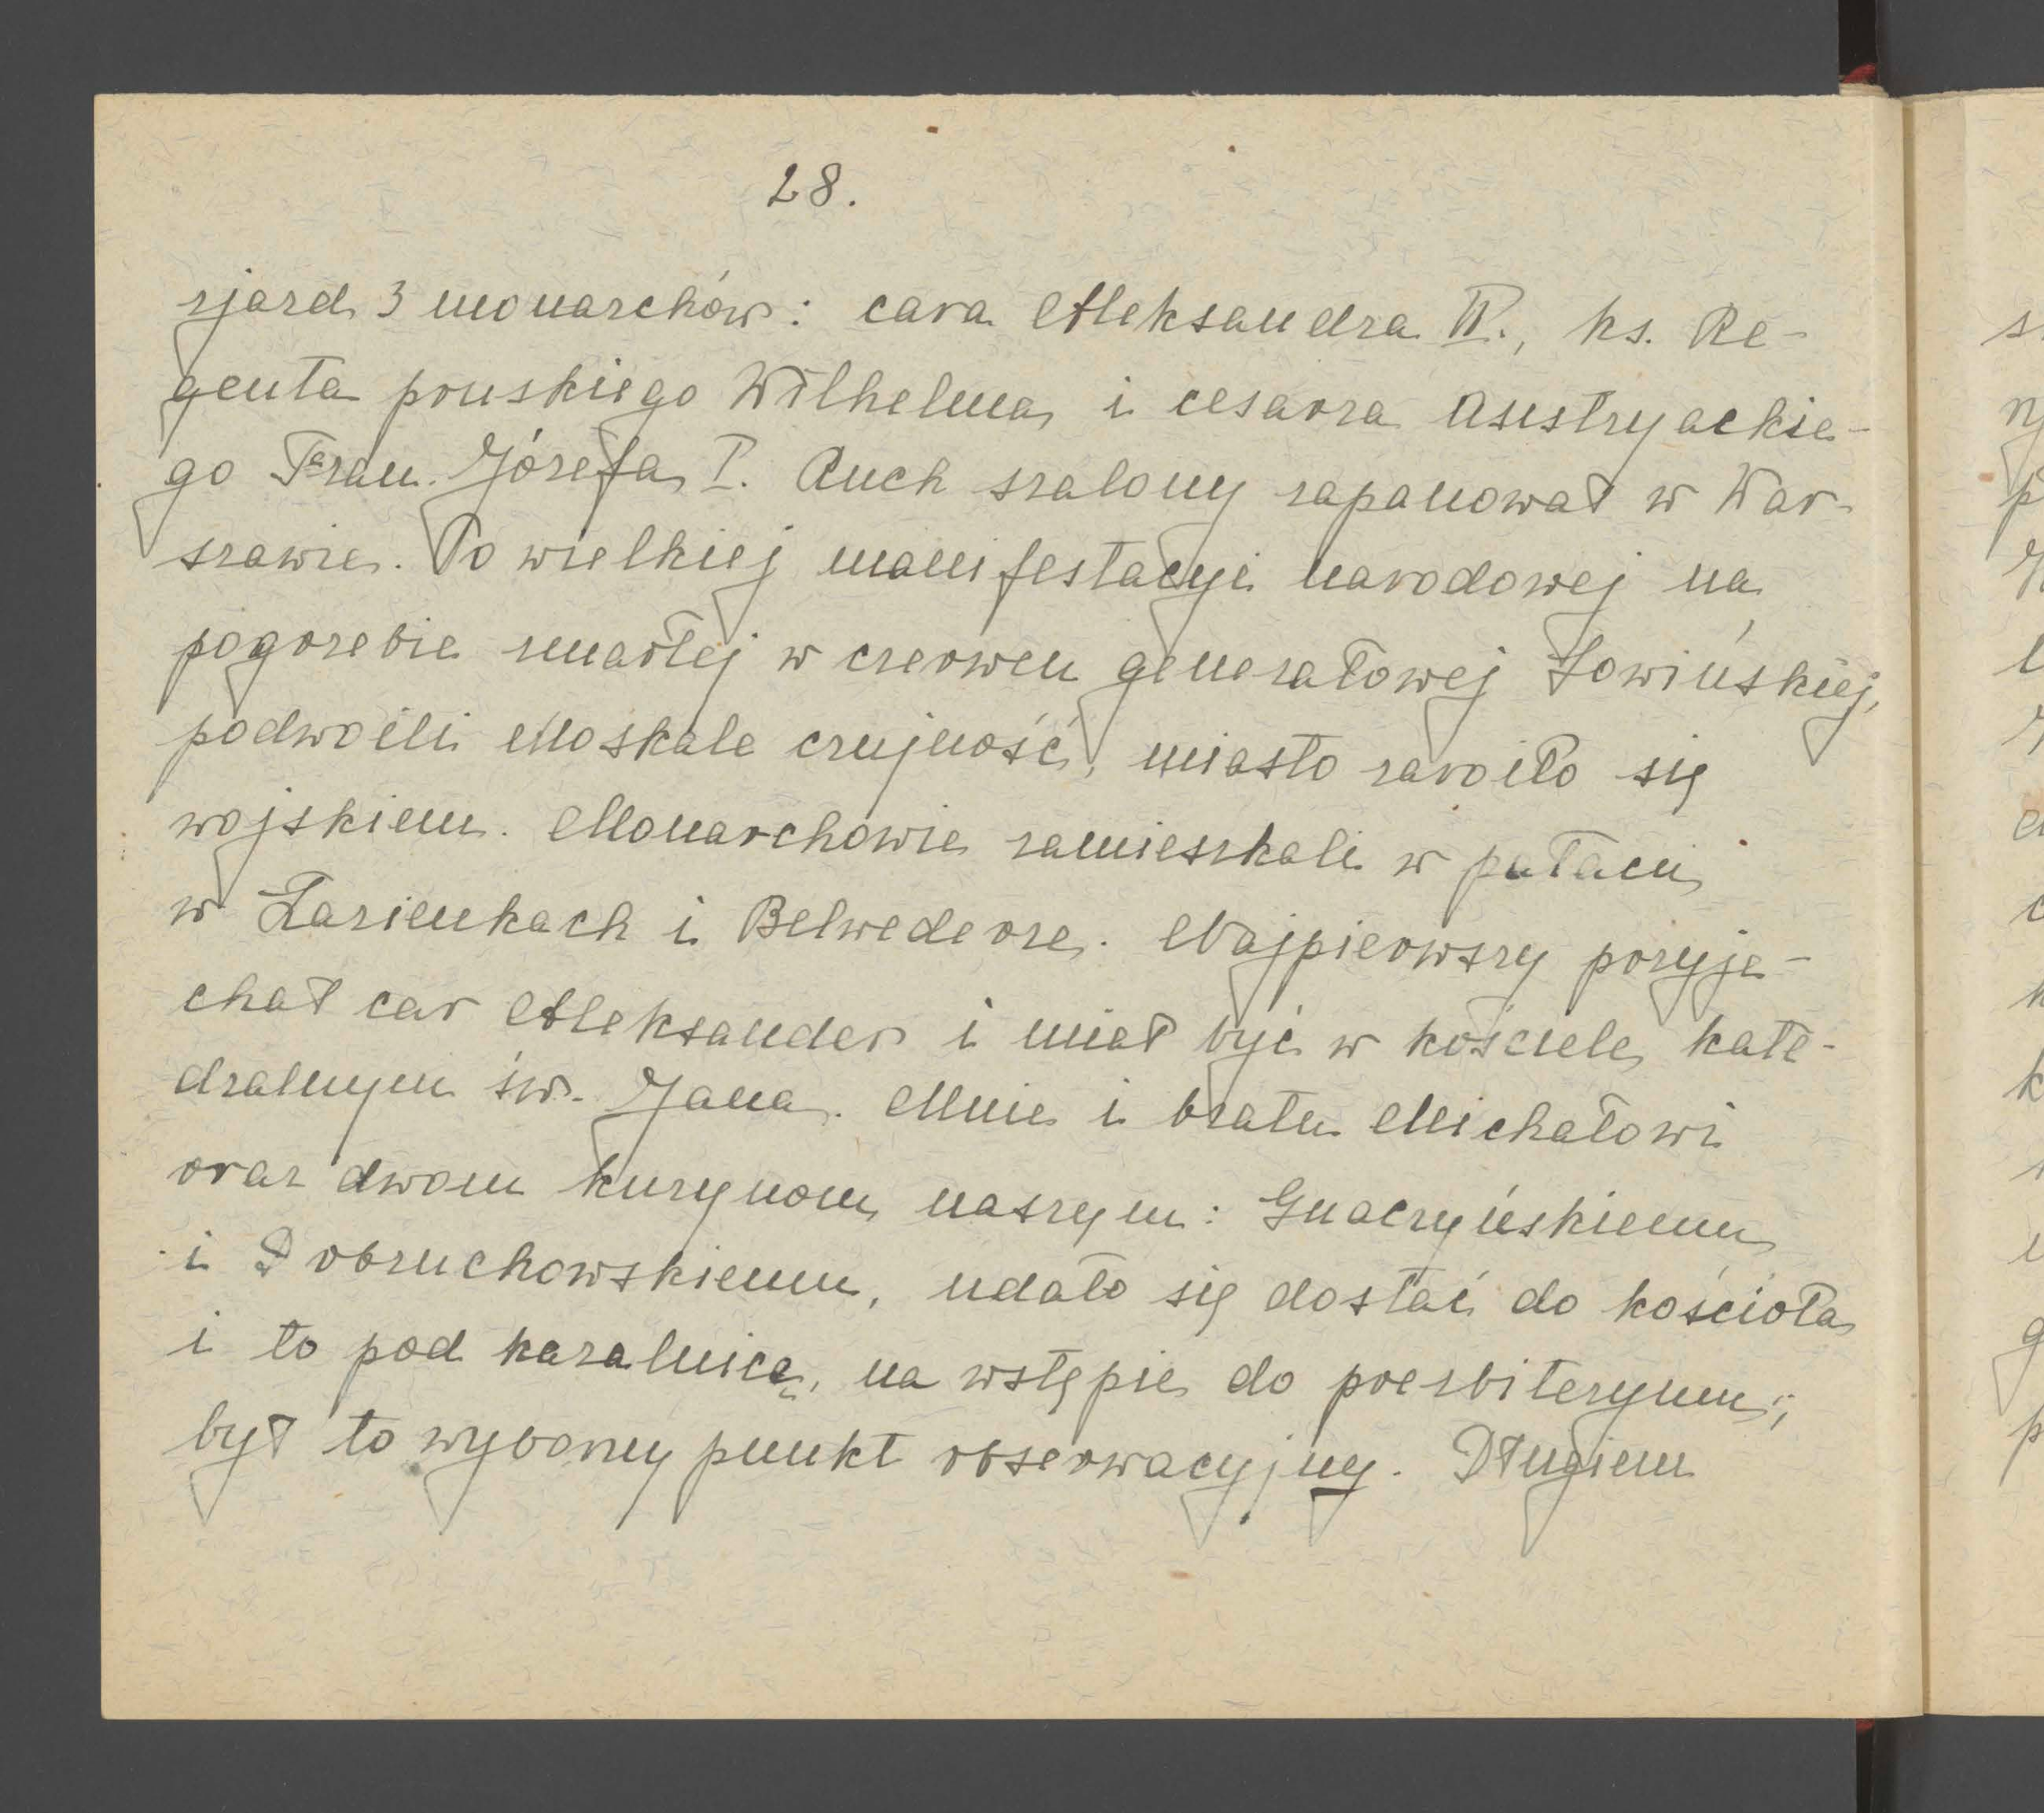 28.
zjazd 3 monarchów: cara Aleksandra II., ks. Re-
genta pruskiego Wilhelma i cesarza Austryackie-
go Fran. Józefa I. Ruch szalony zapanował w War-
szawie. Po wielkiej manifestacyi narodowej na
pogrzebie zmarłej w czerwcu generałowej Sowińskiej,
podwoili Moskale czujność, miasto zaroiło się
wojskiem. Monarchowie zamieszkali w pałacu
w Łazienkach i Belwederze. Najpierwszy przyje-
chał car Aleksander i miał być w kościele kate-
dralnym św. Jana. Mnie i bratu Michałowi
oraz dwom kuzynom naszym: Gnaczyńskiemu
i Dobruchowskiemu, udało się dostać do kościoła
i to pod kazalnicą, na wstępie do prezbiteryum;
był to wyborny punkt obserwacyjny. Długiem